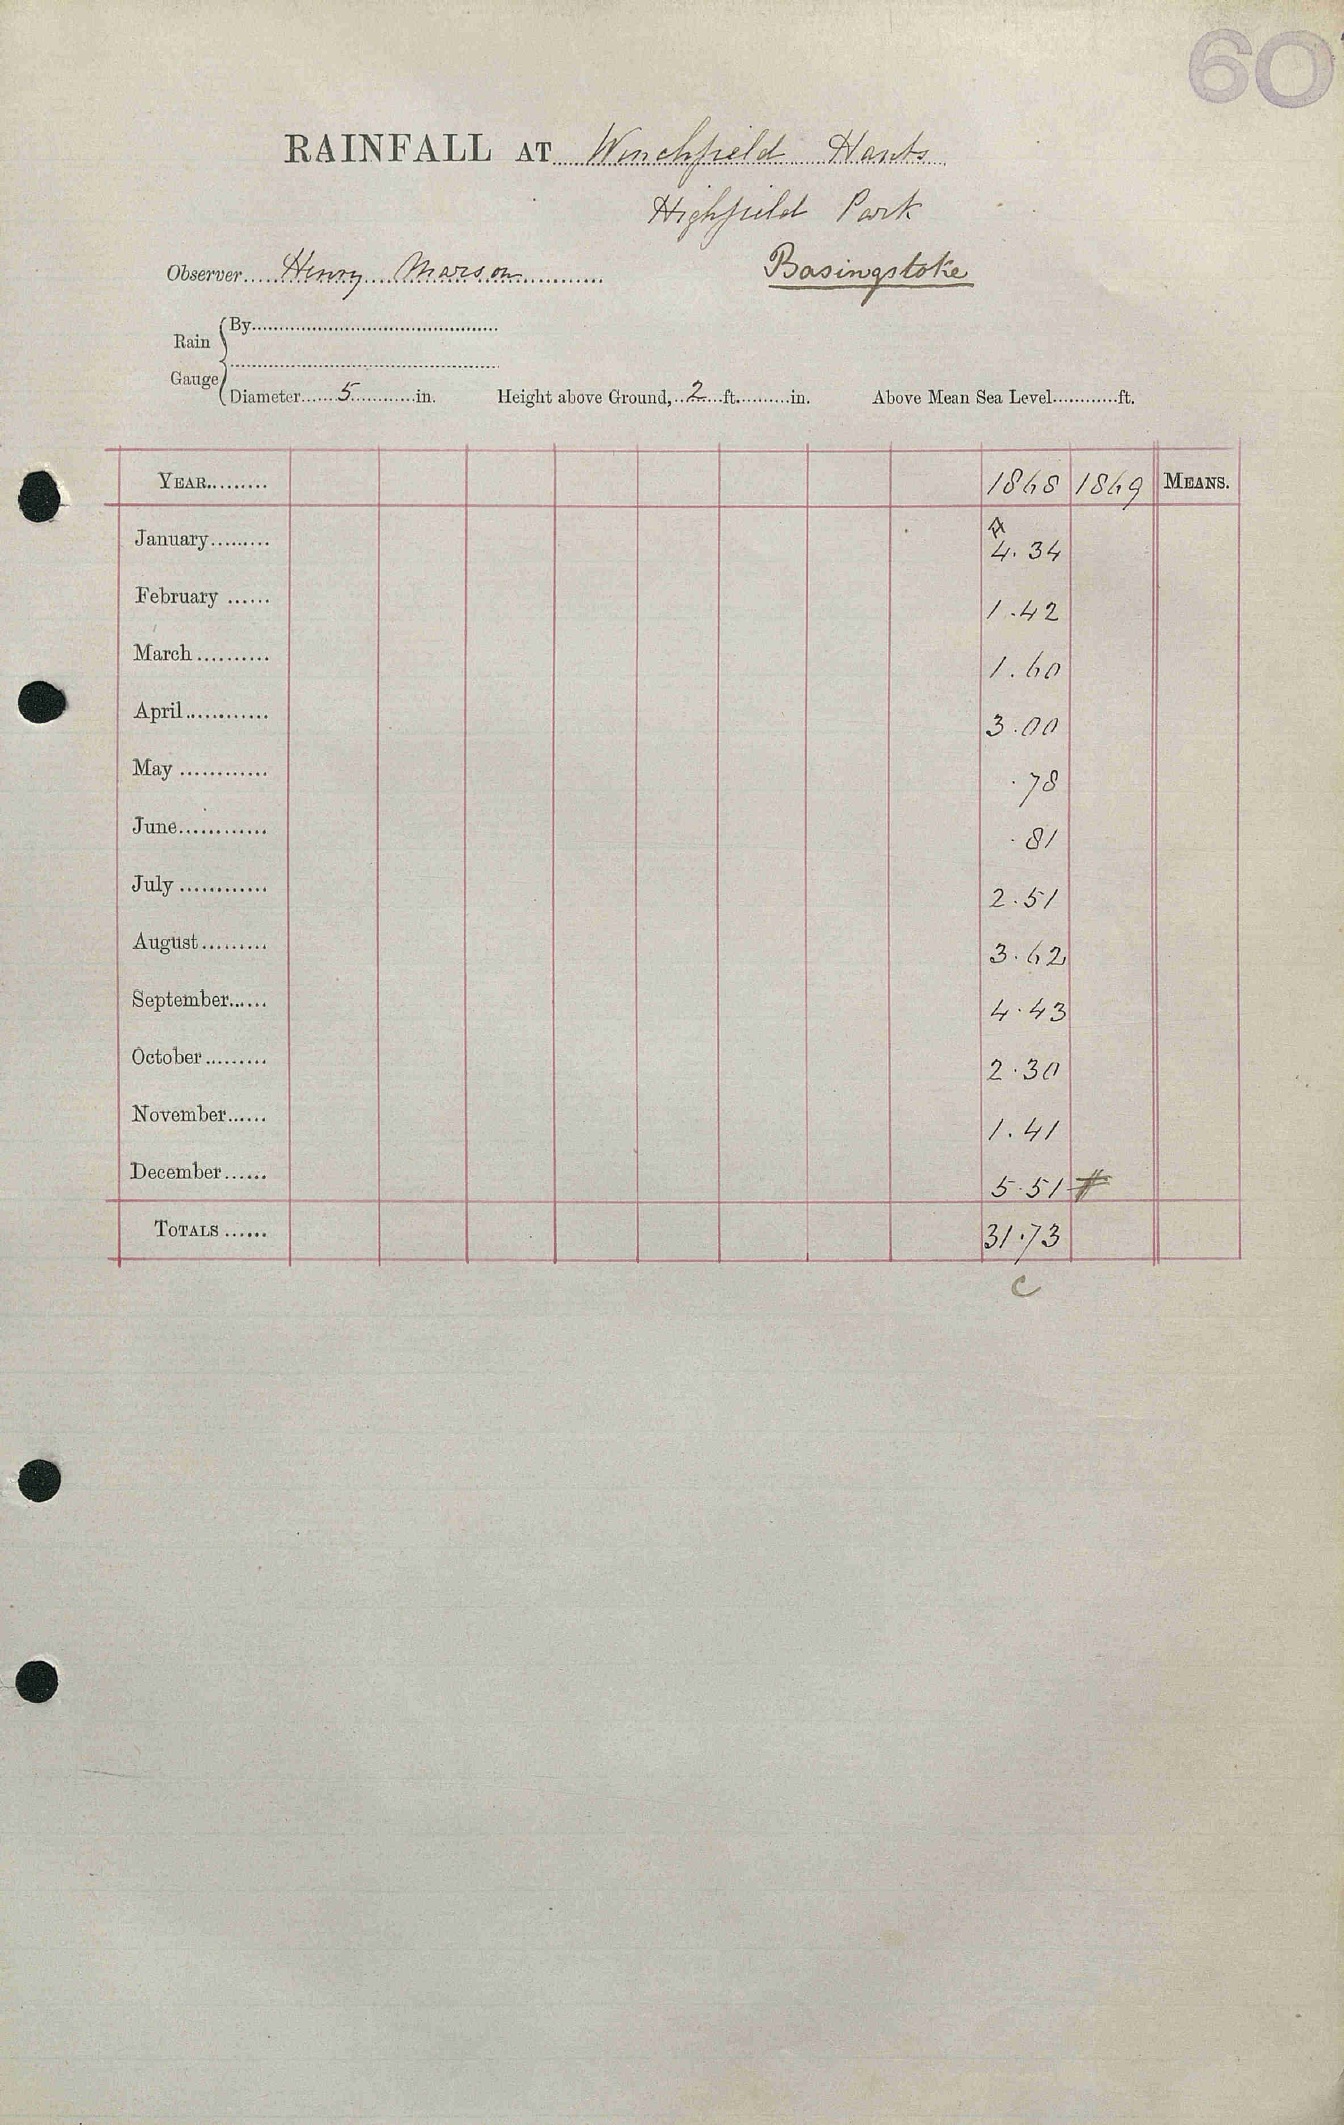 60
RAINFALL AT Winchfield Hants
Highfield Park
Observer Henry Marson Basingstoke
Rain Gauge
By
Diameter 5 in. Height above Ground, 2 ft. in. Above Mean Sea Level ft.
YEAR 1868 1869 MEANS.
A
January 4.34
February 1.42
March 1.60
April 3.00
May .78
June .81
July 2.51
August 3.62
September 4.43
October 2.30
November 1.41
December 5.51 #
TOTALS 31.73
C